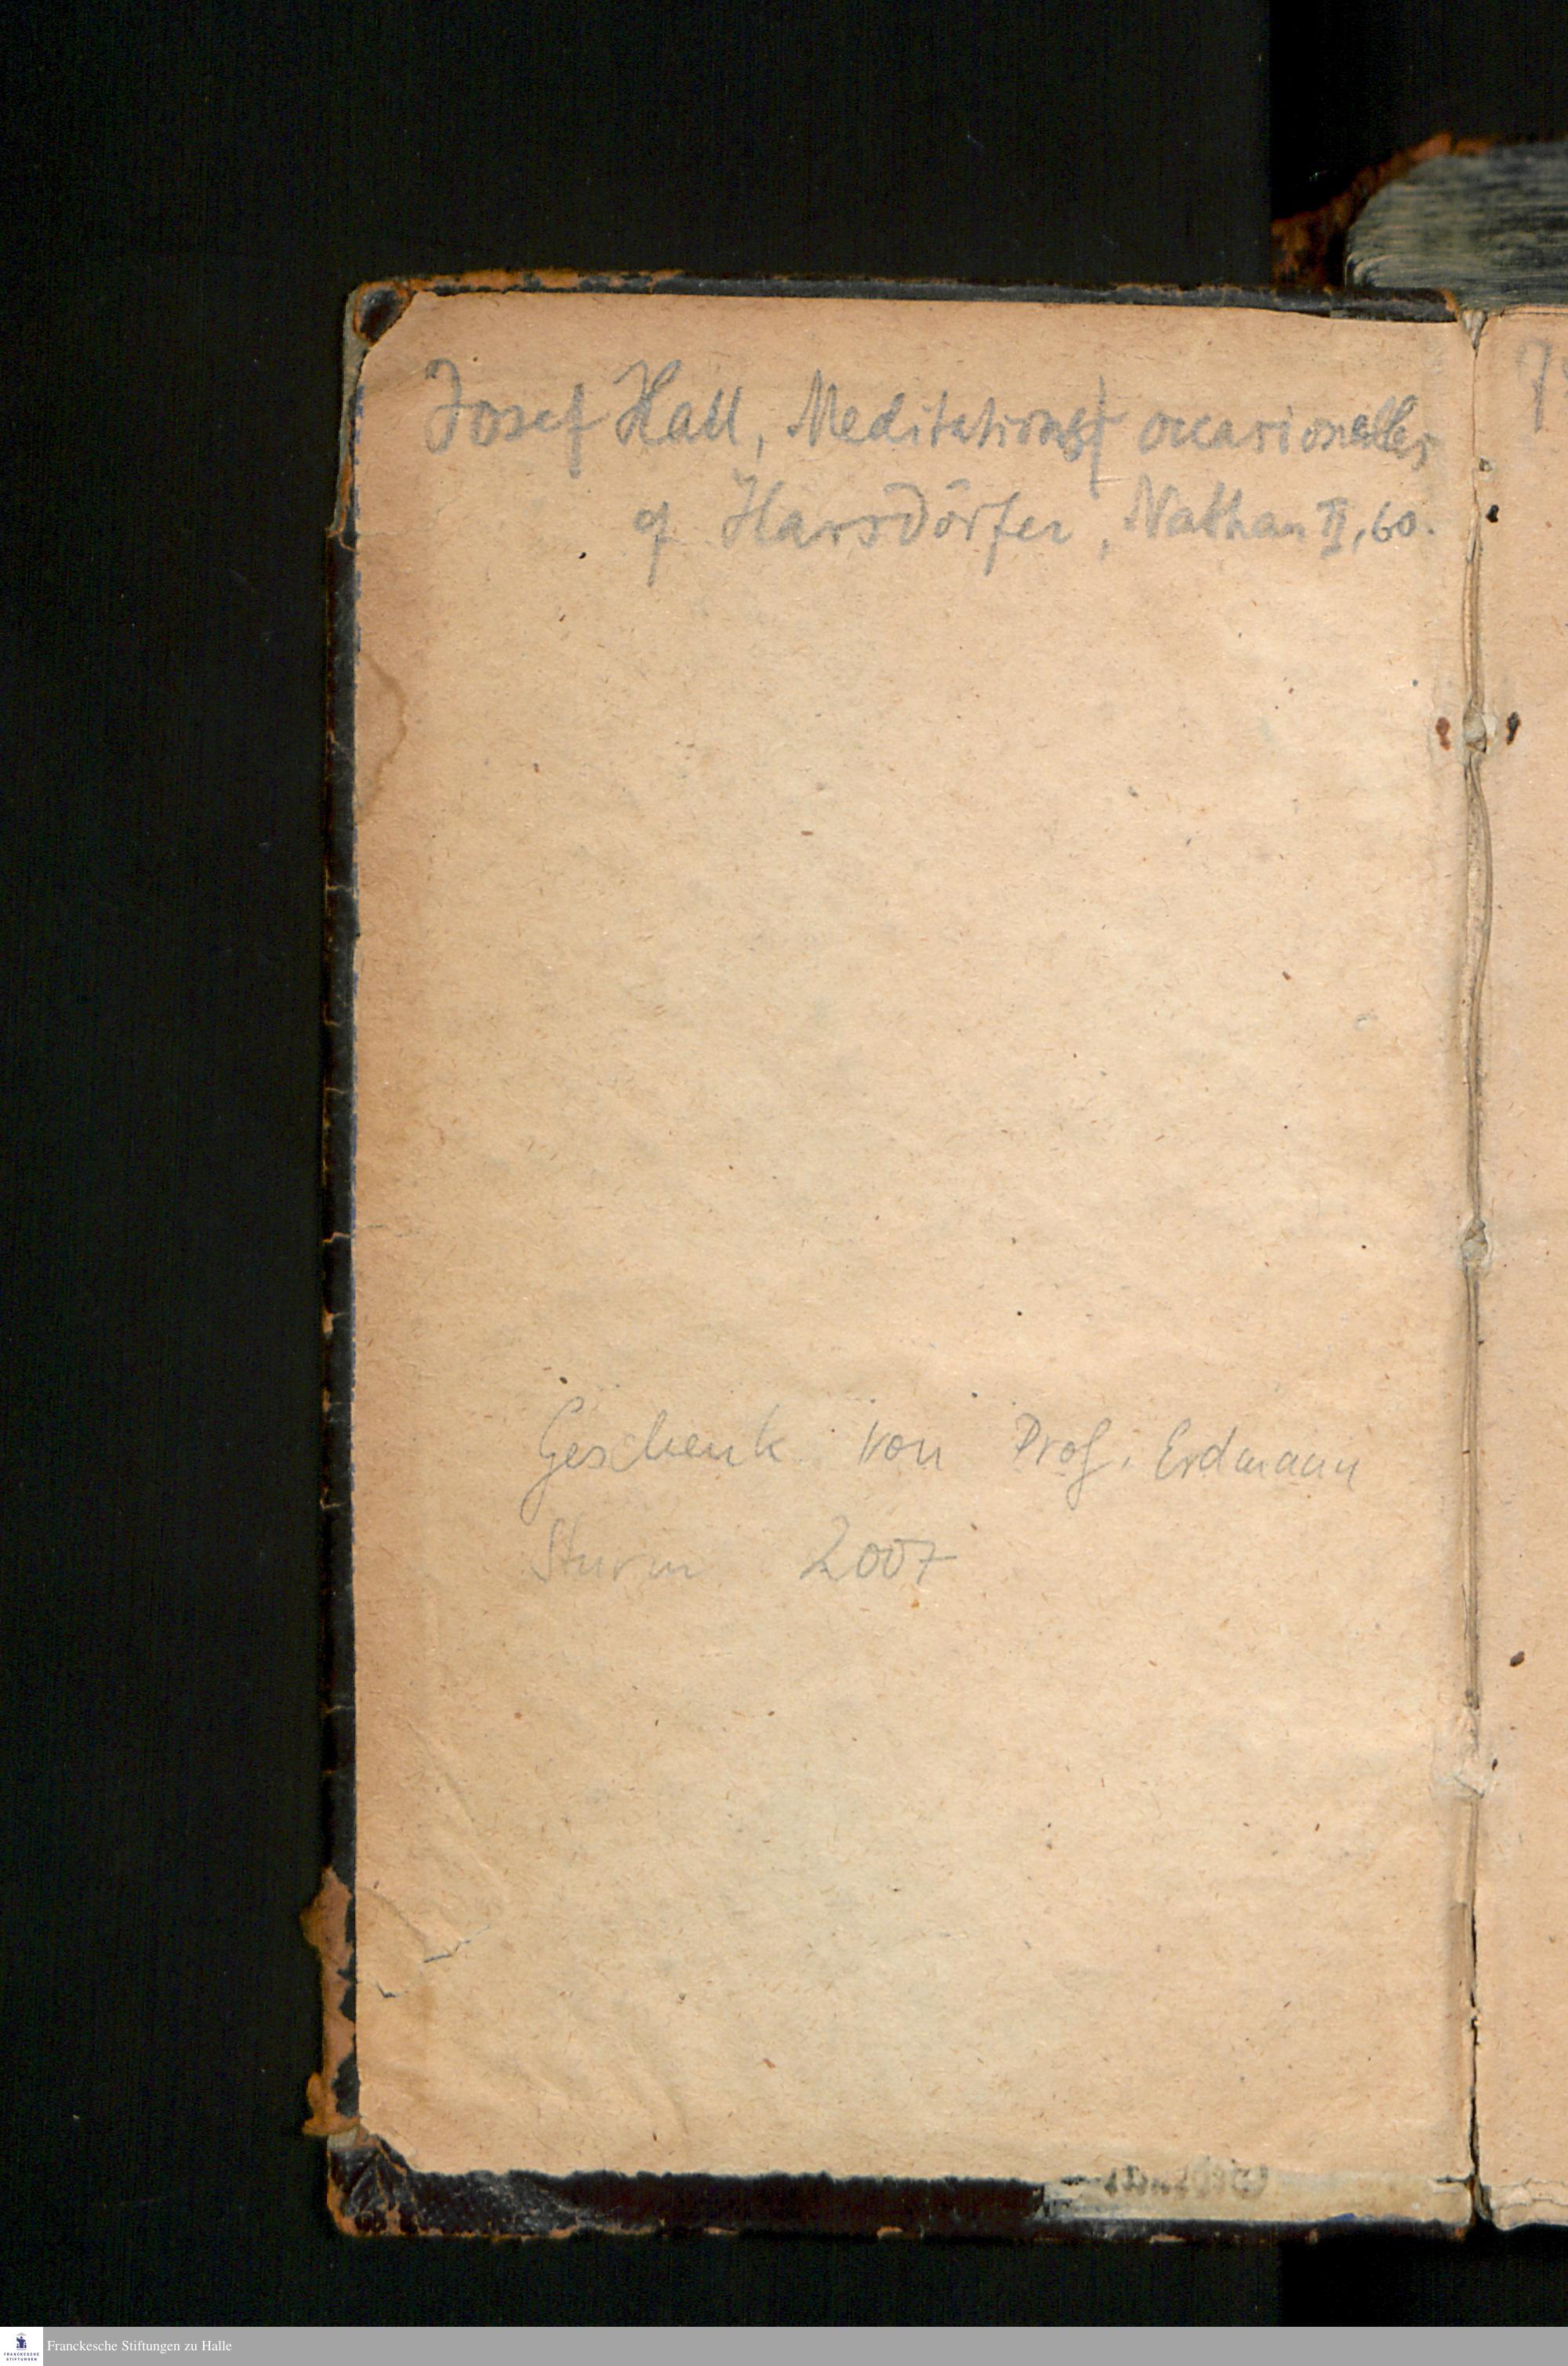 Josef Hall, Meditations occasionelles
cf Harsdörfer, Nathan II, 60.
Geschenk von Prof. Erdmann
Sturm 2007
FRANCKESCHE
STIFTUNGEN
Franckesche Stiftungen zu Halle